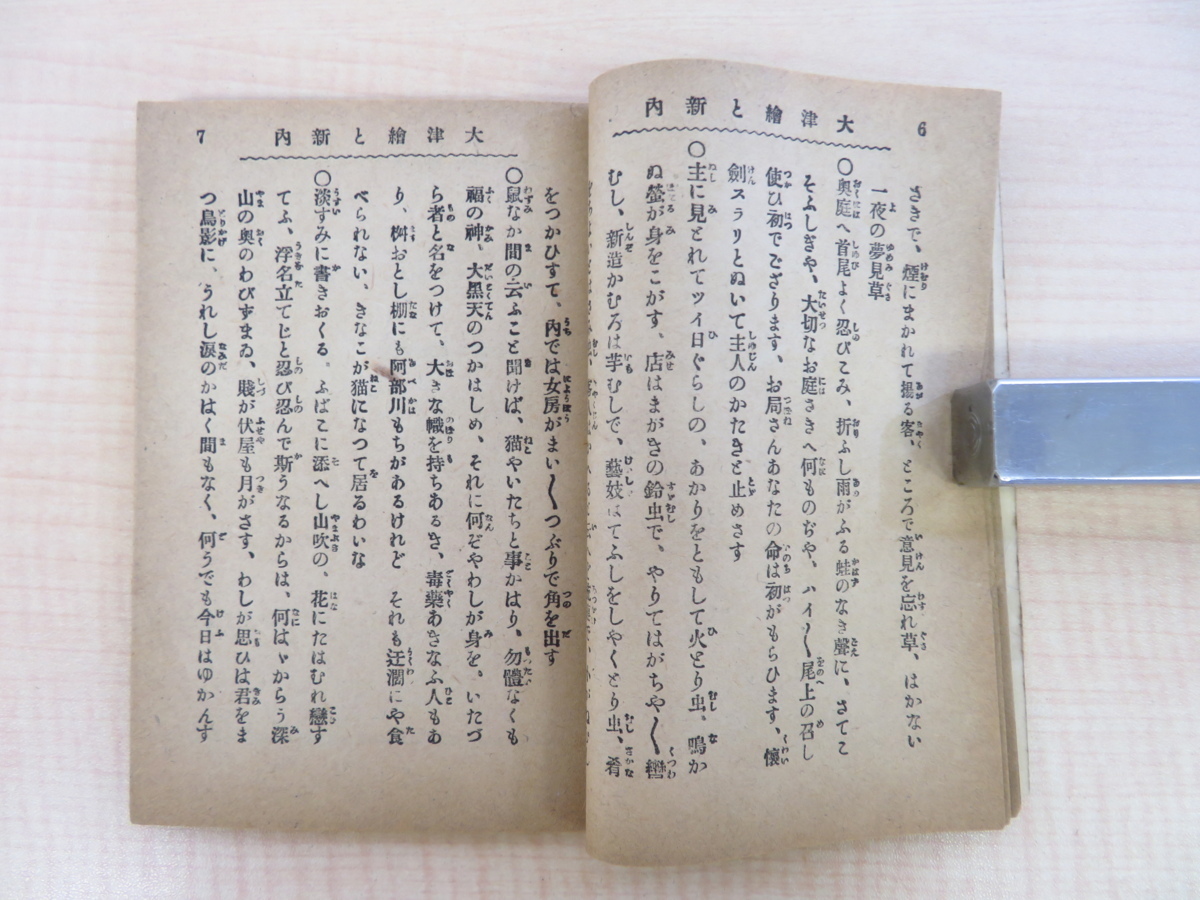 6
大津繪と新內
さきで、煙にまかれて揚る客、ところで意見を忘れ草、はかない
一夜の夢見草
〇奥庭へ首尾よく忍びこみ、折ふし雨がふる蛙のなき聲に、さてこ
そふしぎや、大切なお庭さきへ何ものぢや、ハイ〳〵尾上の召し
使ひ初でござります、お局さんあなたの命は初がもらひます、懐
劍スラリとぬいて主人のかたきと止めさす
〇主に見とれてツイ日ぐらしの、あかりをともして火とり虫、鳴か
ぬ螢が身をこがす、店はまがきの鈴虫で、やりてはがちや〳〵轡
むし、新造かむろは芋むしで、藝妓はてふしをしやくとり虫、肴
7
大津繪と新內
をつかひすて、內では女房がまい〳〵つぶりで角を出す
〇鼠なか間の云ふこと聞けば、猫やいたちと事かはり、勿體なくも
福の神、大黑天のつかはしめ、それに何ぞやわしが身を、いたづ
ら者と名をつけて、大きな幟を持ちあるき、毒藥あきなふ人もあ
り、桝おとし棚にも阿部川もちがあるけれど それも迂濶にや食
べられない、きなこが猫になつて居るわいな
〇淡すみに書きおくる。ふばこに添へし山吹の、花にたはむれ戀す
てふ、浮名立てじと忍び忍んで斯うなるからは、何はゞからう深
山の奥のわびずまゐ、賤が伏屋も月がさす、わしが思ひは君をま
つ鳥影に、うれし涙のかはく間もなく、何うでも今日はゆかんす